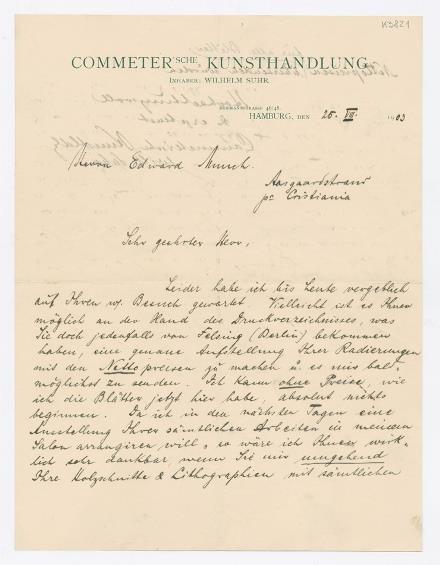 K3821
COMMETER'SCHE KUNSTHANDLUNG
INHABER: WILHELM SUHR.
HERMANNSTRASSE 46/48.
HAMBURG, DEN 25. VII. 1903
Herrn Edward Munch.
Aasgaardstrand
pr Cristiania
Sehr geehrter Herr,
Leider habe ich bis heute vergeblich
auf Ihren w. Besuch gewartet. Vielleicht ist es Ihnen
möglich an der Hand des Druckverzeichnisses, was
Sie doch jedenfalls von Felsing (Berlin) bekommen
haben, eine genaue Aufstellung Ihrer Radierungen
mit den Nettopreisen zu machen u. es mir bald-
möglichst zu senden. Ich kann ohne Preise, wie
ich die Blätter jetzt hier habe, absolut nichts
beginnen. Da ich in den nächsten Tagen eine
Ausstellung Ihrer sämtlichen Arbeiten in meinem
Salon arrangiren will, so wäre ich Ihnen wirk-
lich sehr dankbar, wenn Sie mir umgehend
Ihre Holzschnitte & Lithographien mit sämtlichen